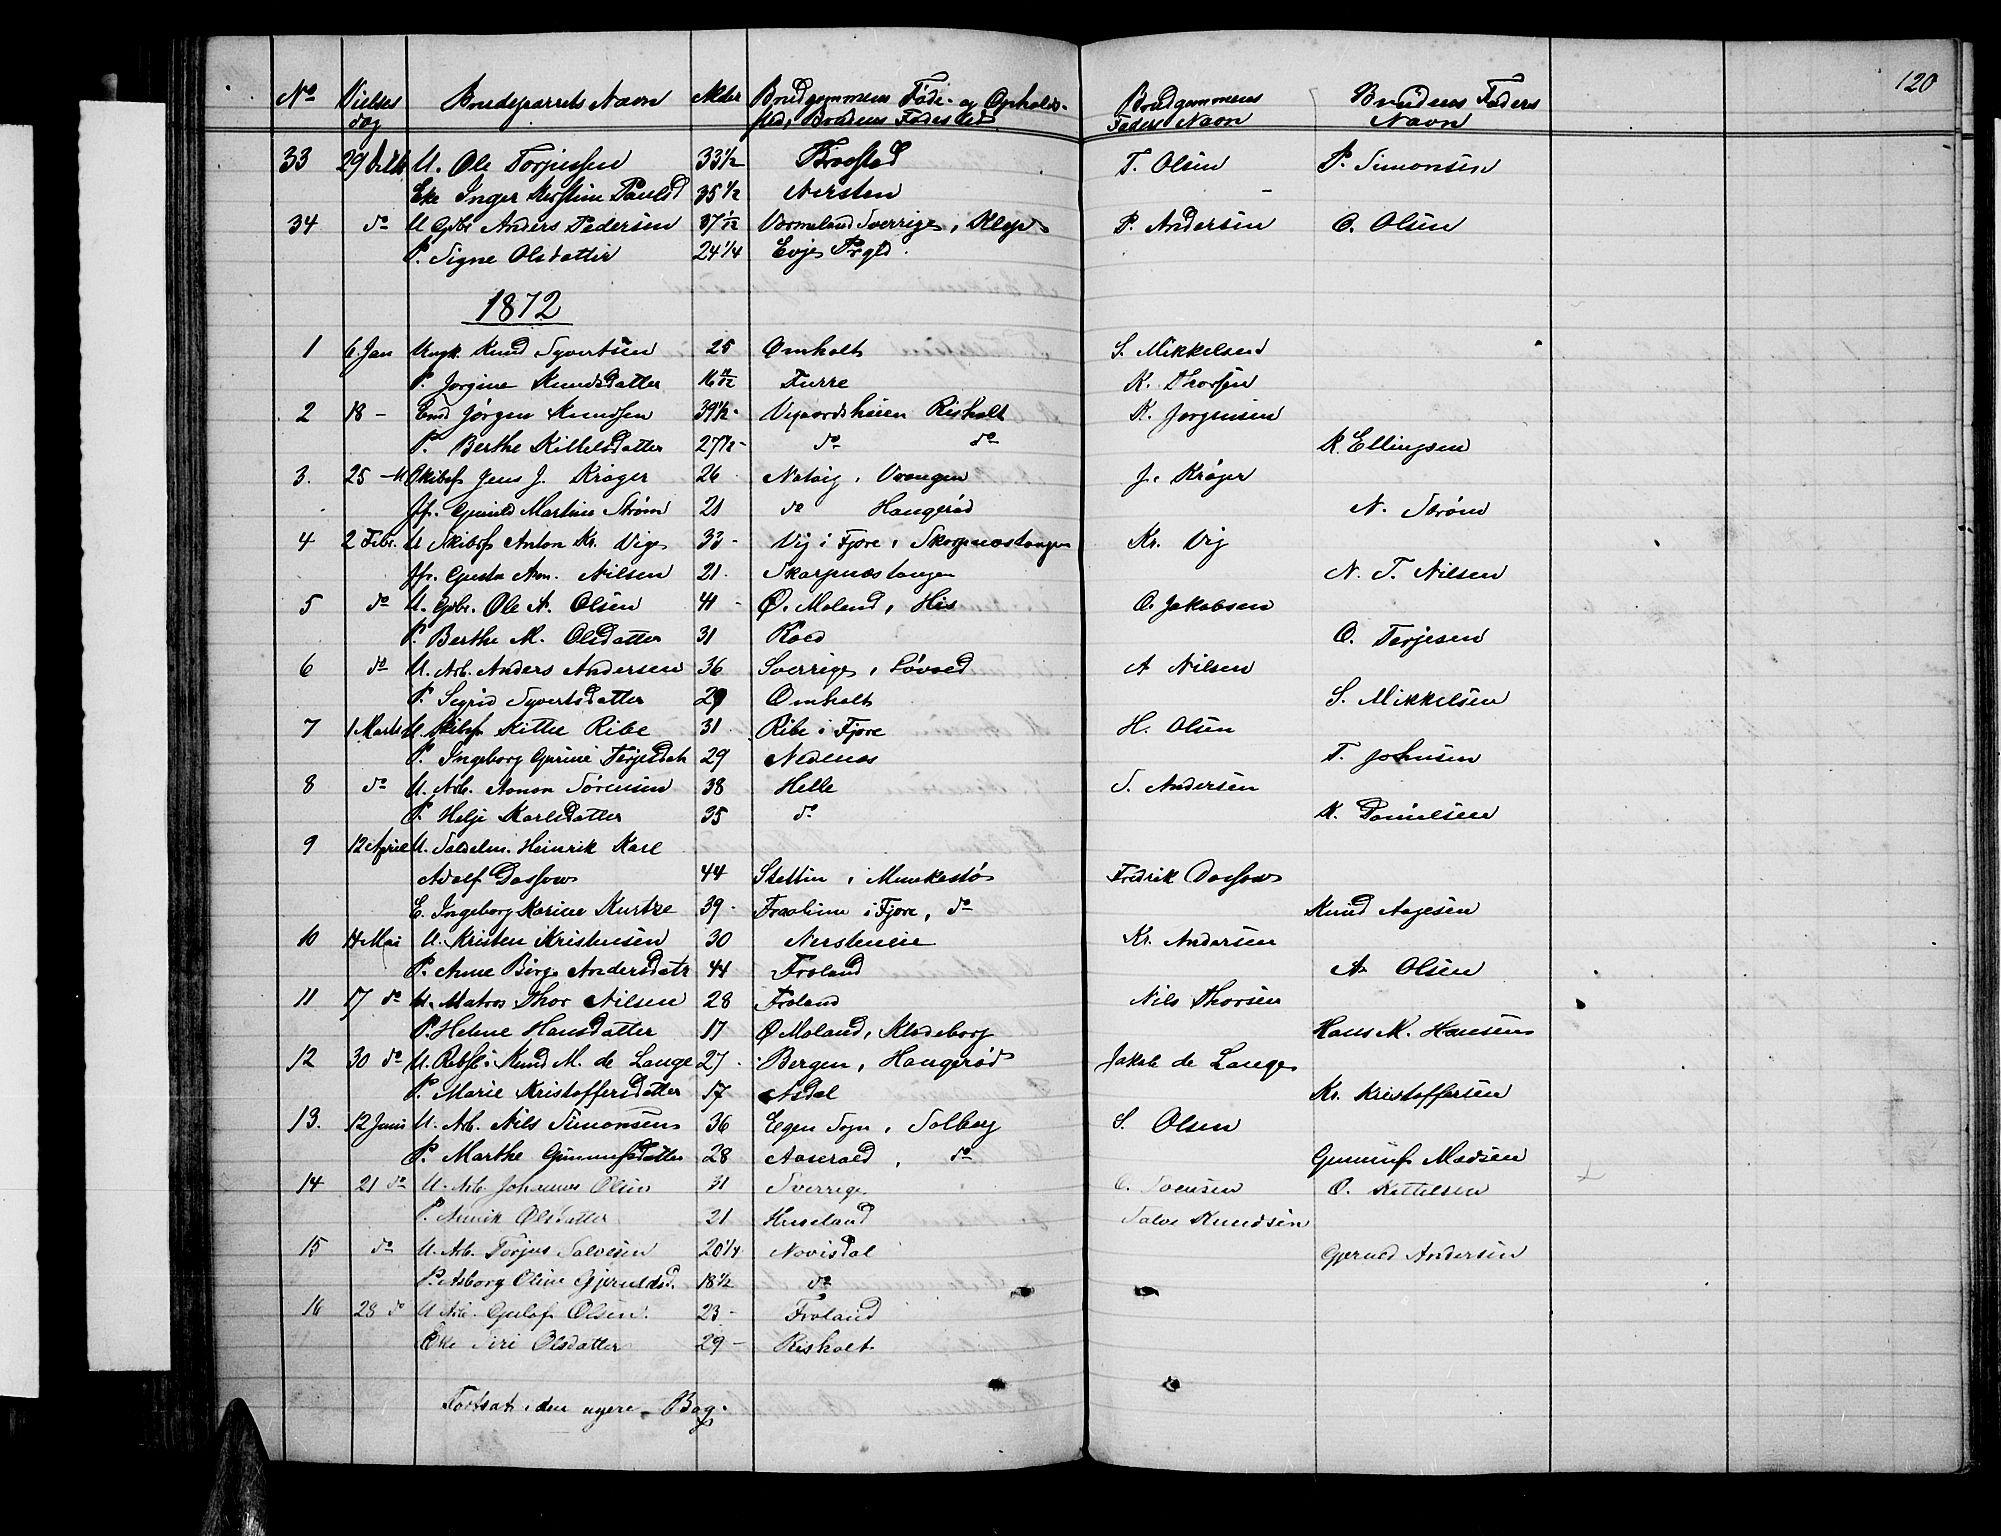 120
No Vielses dag Brudeparrets Navn Alder Brudgommens Føde- og Opholds-sted, Brudens Fødested Brudgommens Faders Navn Brudens Faders Navn
33 29 U. Ole Torjussen 33 1/2 Braastad T. Olsen P. Simonsen
Eke Inger Kirstine Paulsd 35 1/2 Nersten
34 do U Gbr Anders Pedersen 37 1/12 Vermeland Sverrige, Klep P. Andersen O. Olsen
P. Signe Olsdatter 24 1/4 Evje Prgld.
1872
1 6 Jan Ungk. Knud Syvertsen 25 Omholt S. Mikkelsen
P. Jorgine Knudsdatter 16 Furre K. Thorsen
2 18 - Enk Jørgen Knudsen 39 1/2 - Vegaardsheien Risholt K. Jørgensen
P. Berthe Kittelsdatter 27 1/2 - do do K. Ellingsen
3. 25 - U Skibsf Jens J. Krøger 26 Natvig, Vrangen J. Krøger
Jfr. Gunild Martine Strøm 21 do Haugerød N. Strøm
4 2 Febr. U Skibsf Anton Kr. Vig 33 - Vig i Fjære, Skarpnæstangen Kr. Vig
Jfr. Gusta Am. Nilsen 21. Skarpnæstangen N. T. Nilsen
5 do U. Gbr. Ole A. Olsen 41 - Ø. Moland, His O. Jakobsen
P. Berthe M. Olsdatter 31 Roed O. Terjesen
6 do U. Arb. Anders Andersen 36 Sverrige, Løvaed A Nilsen
P. Sigrid Syvertsdatter 29 Omholt S. Mikkelsen
7 1 Marts U. Skibsf Kittel Ribe 31 Ribe i Fjære H. Olsen
P. Ingeborg Gurine Terjesdatt 29 Nedenæs T. Johnsen
8 do U. Arb. Aanon Sørensen 38 Helle S. Andersen
P. Helje Karlsdatter 35 do K. Danielsen
9 12 April U. Sadelm. Heinrik Karl
Adolf Dassow 44 Stettin, Munkestø Fredrik Dassow
E. Ingeborg Karine Kurtze 39 - i Fjære, do Knud Aagesen
10 14 Mai U. Kristen Kristensen 30 Nersteneie Kr. Andersen
P. Anne Birg. Andersdatr 44 Froland A. Olsen
11 17 do U. Matros Thor Nilsen 28 Froland Nils Thorsen
P. Helene Hansdatter 17 Ø Moland, Klødeborg Hans M. Hansen
12 30 do U. Rebsl: Knud M. de Lange 27. Bergen, Haugerød Jakob de Lange
P. Marie Kristoffersdatter 17 Asdal Kr. Kristoffersen
13. 12 Juni U. Arb. Nils Simonsen 36 Egen Sogn, Solberg S. Olsen
P. Marthe Gunnufsdatter 28 Aaserald, do Gunnuf Madsen
14 21 do U. Arb. Johannes Olsen 31 Sverrige O. Svensen O. Kittelsen
P. Olsdatter 21 Huseland Salve Knudsen
15 do U. Arb. Torjus Salvesen 20 1/4 Navisdal Gjeruld Andersen
P. Asborg Oline Gjeruldsd. 18 1/2 do
16 28 do U Arb. Gulof Olsen. 23 - Froland
Eke Siri Olsdatter 29 - Risholt
Fortsat i den nyere Bog.